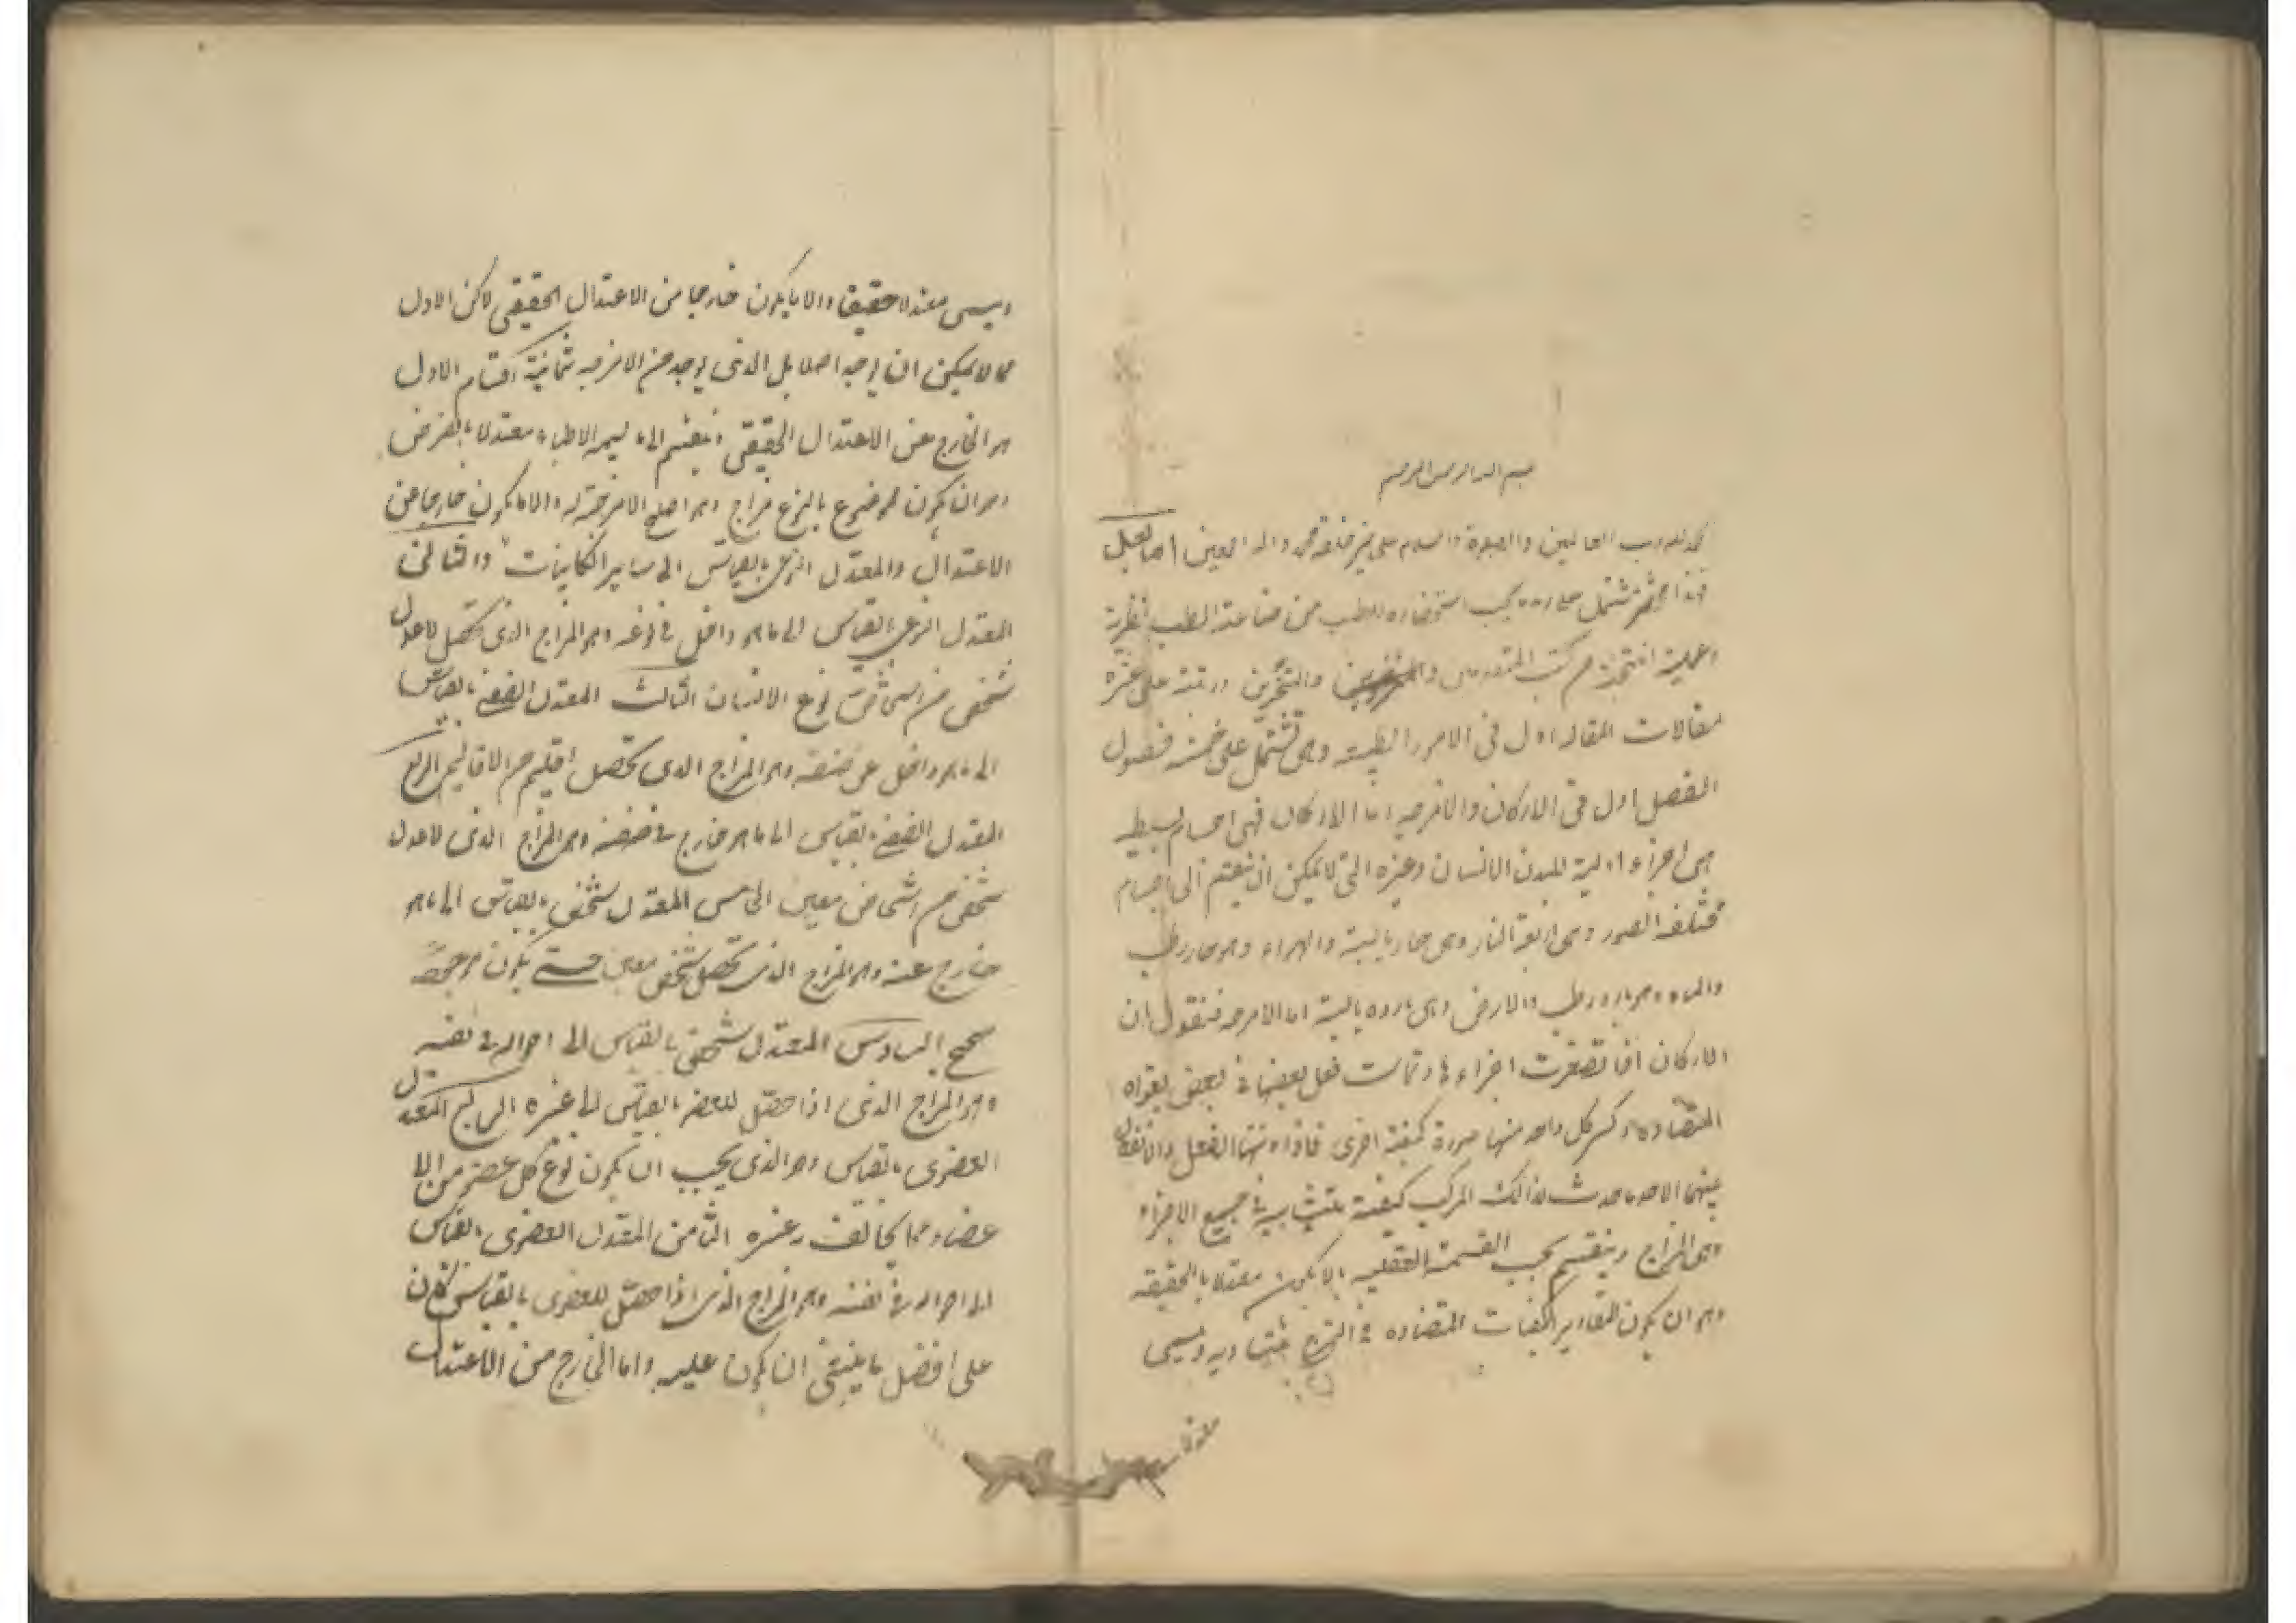 بسم الله الرحمن الرحيم
الحمد لله رب العالمين والصلوة والسلام على خير خلقه محمد واله اجمعين اما بعد
فهذا مختصر مشتمل على ما يجب استحضاره للطبيب من صناعة الطب نظرية
وعملية انتخبته من كتب المتقدمين والمتأخرين ورتبته على عشرة
مقالات المقاله اول فى الامور الطبيعيه وهى تشتمل على خمسة فصول
الفصل اول فى الاركان والامزجه اما الاركان فهى اجسام بسيطه
هى اجزاء اولية لبدن الانسان وغيره التى لا يمكن ان ينقسم الى اجسام
مختلفه الصور وهى اربعة النار وهى حار يابسة والهواء وهو حار رطب
والماء وهو بارد رطب والارض وهى بارده يابسة اما الامزجه فنقول ان
الاركان اذا تصغرت اجزاءها وتماست فعل بعضها فى بعض بقواه
المتضاده وكسر كل واحد منها صورة كيفية اخرى فاذا انتهى الفعل والانفعال
بينهما الى حد ما حدث لذالك المركب كيفية متشابهه فى جميع الاجزاء
وهى المزاج وينقسم بحسب القسمة العقليه بالا يكون معتدلا بالحقيقه
وهو ان يكون المقادير الكيفيات المتضاده فى الممتزج متساويه ويسمى
ويسمى معتدلا حقيقيا والا يكون خارجا من الاعتدال الحقيقى لاكن الاول
مما لا يمكن ان يوجد اصلا بل الذى يوجد من الامزجه ثمانية اقسام الاول
هو الخارج عن الاعتدال الحقيقى وينقسم الى ما يسميه الاطباء معتدلا بالفرض
وهو ان يكون لموضوع بالنوع مزاج هو اصلح الامزجة له والا ما يكون خارجا عن
الاعتدال والمعتدل النوعى بالقياس الى ساير الكاينات والثانى
المعتدل النوعى بالقياس الى ما هو داخل فى نوعه وهو المزاج الذى يحصل لاعدل
شخص من اشخاص نوع الانسان الثالث المعتدل الصنفى بالقياس
الى ما هو داخل عن صنفه وهو المزاج الذى يحصل اقليم من الاقاليم الرابع
المعتدل الصنفى بالقياس الى ما هو خارج فى صنفه وهو المزاج الذى لاعدل
شخص من اشخاص معين الخامس المعتدل شخصى بالقياس الى ما هو
خارج عنه وهو المزاج الذى يحصل شخص معين حتى يكون موجودا
صحيح السادس المعتدل شخصى بالقياس الى احواله فى نفسه
وهو المزاج الذى اذا حصل للعضو بالقياس الى غيره السابع المعتدل
العضوى بالقياس وهو الذى يجب ان يكون نوع كل عضو من الا
عضاء مما يخالف غيره الثامن المعتدل العضوى بالقياس
الى احواله فى نفسه وهو المزاج الذى اذا حصل للعضوى بالقياس كان
على افضل ما ينبغى ان يكون عليه واما الخارج من الاعتدال